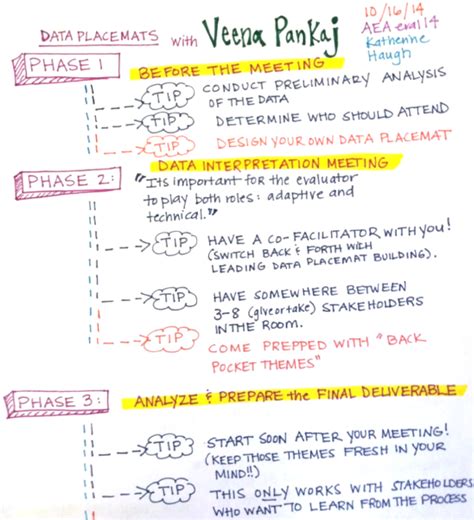 DATA PLACEMATS with Veena Pankaj
10/16/14
AEA eval14
Katherine
Haugh
PHASE 1
BEFORE THE MEETING
TIP
CONDUCT PRELIMINARY ANALYSIS
OF THE DATA
TIP
DETERMINE WHO SHOULD ATTEND
TIP
DESIGN YOUR OWN DATA PLACEMAT
PHASE 2:
DATA INTERPRETATION MEETING
"Its important for the evaluator
to play both roles: adaptive and
technical."
TIP
HAVE A CO-FACILITATOR WITH YOU!
(SWITCH BACK & FORTH WITH
LEADING DATA PLACEMAT BUILDING).
TIP
HAVE SOMEWHERE BETWEEN
3-8 (give or take) STAKEHOLDERS
IN THE ROOM.
TIP
COME PREPPED WITH "BACK
POCKET THEMES"
PHASE 3:
ANALYZE & PREPARE the FINAL DELIVERABLE
TIP
START SOON AFTER YOUR MEETING!
(KEEP THOSE THEMES FRESH IN YOUR
MIND!!)
TIP
THIS ONLY WORKS WITH STAKEHOLDERS
WHO WANT TO LEARN FROM THE PROCESS